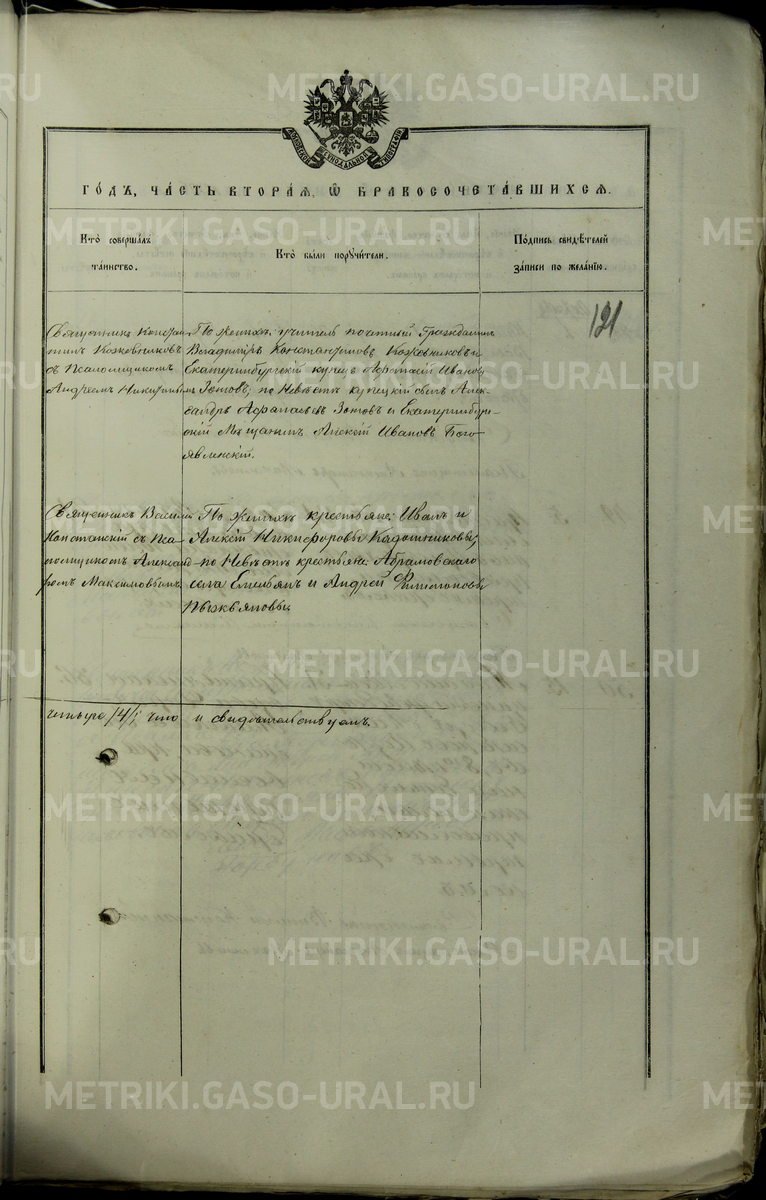 METRIKI.GASO-URAL.RU
МОСКОВСКОЙ СѴНОДАЛЬНОЙ ТИПОГРАФІИ
ГО́ДЪ, ЧА́СТЬ ВТОРА́Я, Ѿ БРАКОСОЧЕТА́ВШИХСЯ.
Кто̀ соверша́лъ
та́инство.
Кто̀ бы́ли поручи́тели.
По́дпись свидѣ́телей
за́писи по жела́нію.
121
Священникъ Констан-
тинъ Кожевниковъ
съ Псаломщикомъ
Андреемъ Никитинымъ
По женихѣ: учитель почетный Гражданинъ
Владиміръ Константиновъ Кожевниковъ и
Екатеринбургскій купецъ Афанасій Ивановъ
Зотовъ; по Невѣстѣ купецкій сынъ Алек-
сандръ Афанасьевъ Зотовъ и Екатеринбург-
скій Мѣщанинъ Алексій Ивановъ Бого-
явленскій.
Священникъ Василій
съ Пса-
ломщикомъ Александ-
ромъ Максимовымъ
По женихѣ крестьяне: Иванъ и
Алексій Никифоровы
по Невѣстѣ крестьяне: Абрамовскаго
села Емельянъ и Андрей Филимоновы
четыре /4/ что и свидѣтельствуемъ.